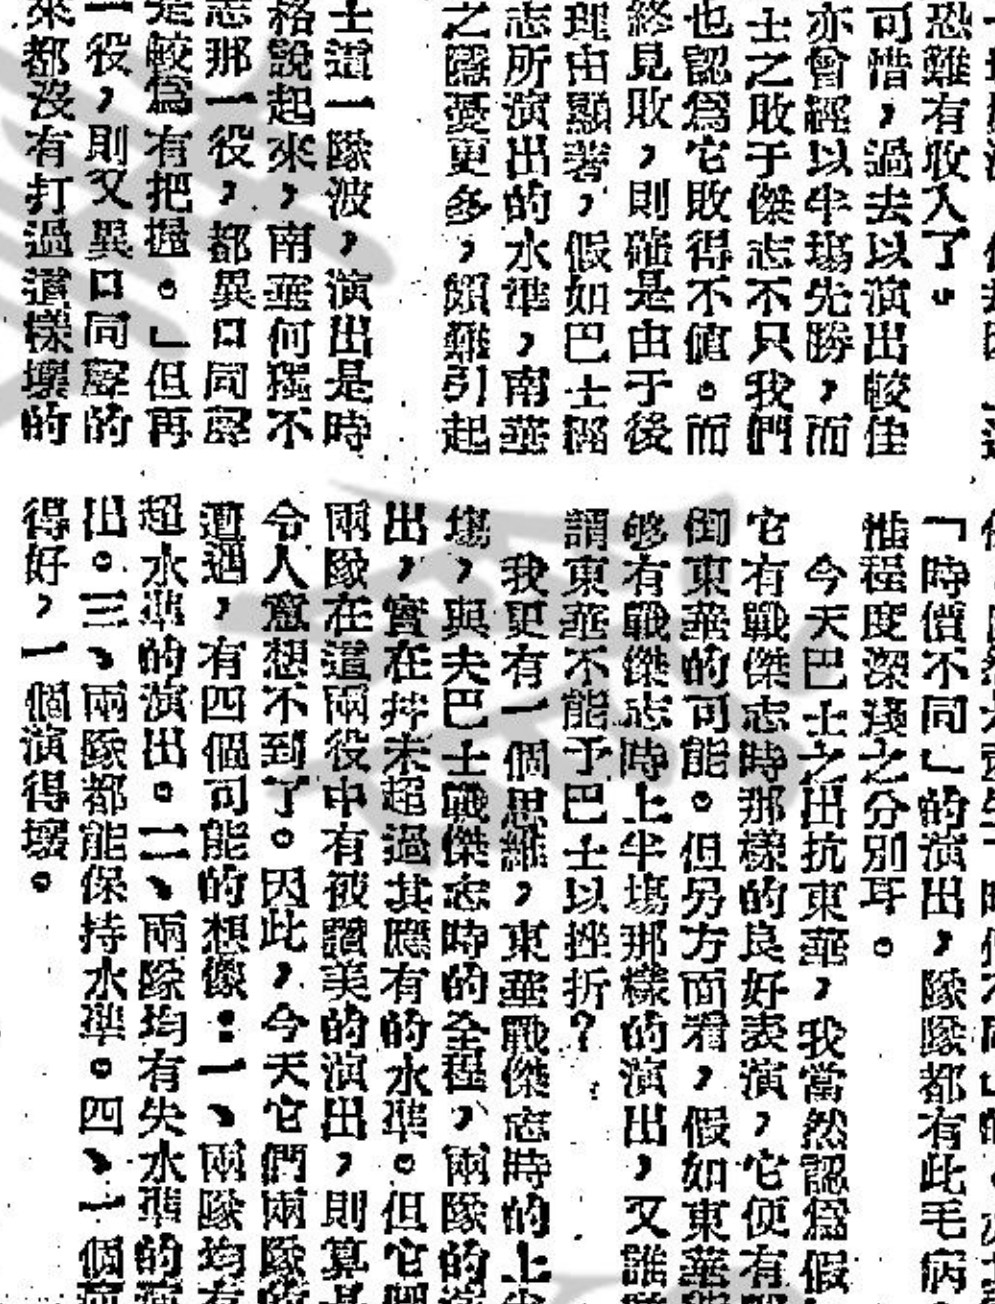 恐難有收入了。
可惜，過去以演出較佳
亦曾經以半塲先勝，而
士之敗于傑志不只我們
也認爲它敗得不値。而
終見敗，則確是由于後
理由顯著，假如巴士
志所演出的水準，南華
之隱憂更多，頗難引起
士這一隊波，演出是時
格說起來，南華何獨不
志那一役，都異口同聲
是較爲有把握。」但再
一役，則又異口同聲的
來都沒有打過這樣壞的
「時價不同」的演出，隊隊都有此毛病
惟程度深淺之分別耳。
今天巴士之出抗東華，我當然認爲假
它有戰傑志時那樣的良好表演，它便有
倒東華的可能。但另方面看，假如東華
够有戰傑志時上半塲那樣的演出，又誰
謂東華不能予巴士以挫折？
我更有一個思維，東華戰傑志時的上
塲，與夫巴士戰傑志時的全程，兩隊的
出，實在并未超過其應有的水準。但它
兩隊在這兩役中有被讚美的演出，則算
令人意想不到了。因此，今天它們兩隊
遭遇，有四個可能的想像：一、兩隊均
超水準的演出。二、兩隊均有失水準的
出。三、兩隊都能保持水準。四、一個
得好，一個演得壞。